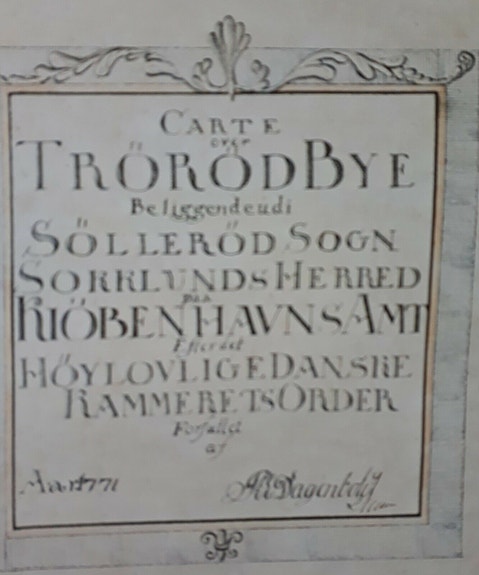 CARTE
over
TRÖRÖD BYE
Beliggende udi
SÖLLERÖD SOGN
SOKKLUNDS HERRED
paa
KIÖBENHAVNS AMT
Efter det
HÖYLOVLIGE DANSKE
KAMMERETS ORDER
Forfattet
af
Aar 1771